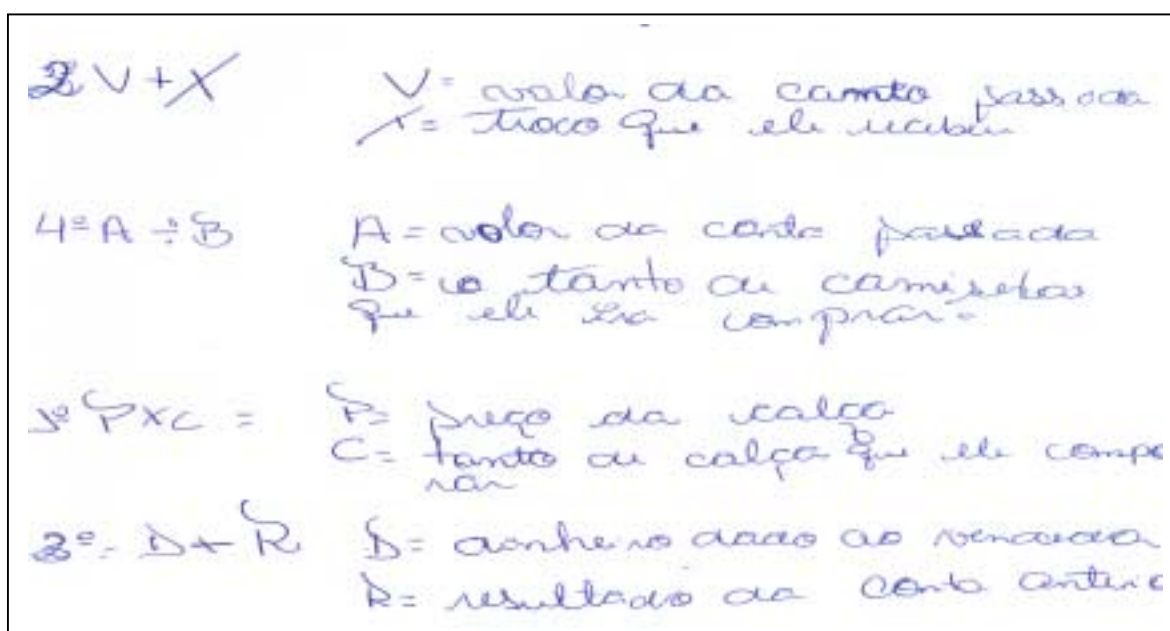 2 V + X V = valor da camta passada
X = troco que ele recebeu
4º A ÷ B A = valor da conta passada
B = o tanto de camisetas
que ele ira comprar.
1º P x C = P = preço da calça
C = tanto de calça que ele comp
rar
3º - D + R D = dinheiro dado ao vendedor
R = resultado da conta anterio